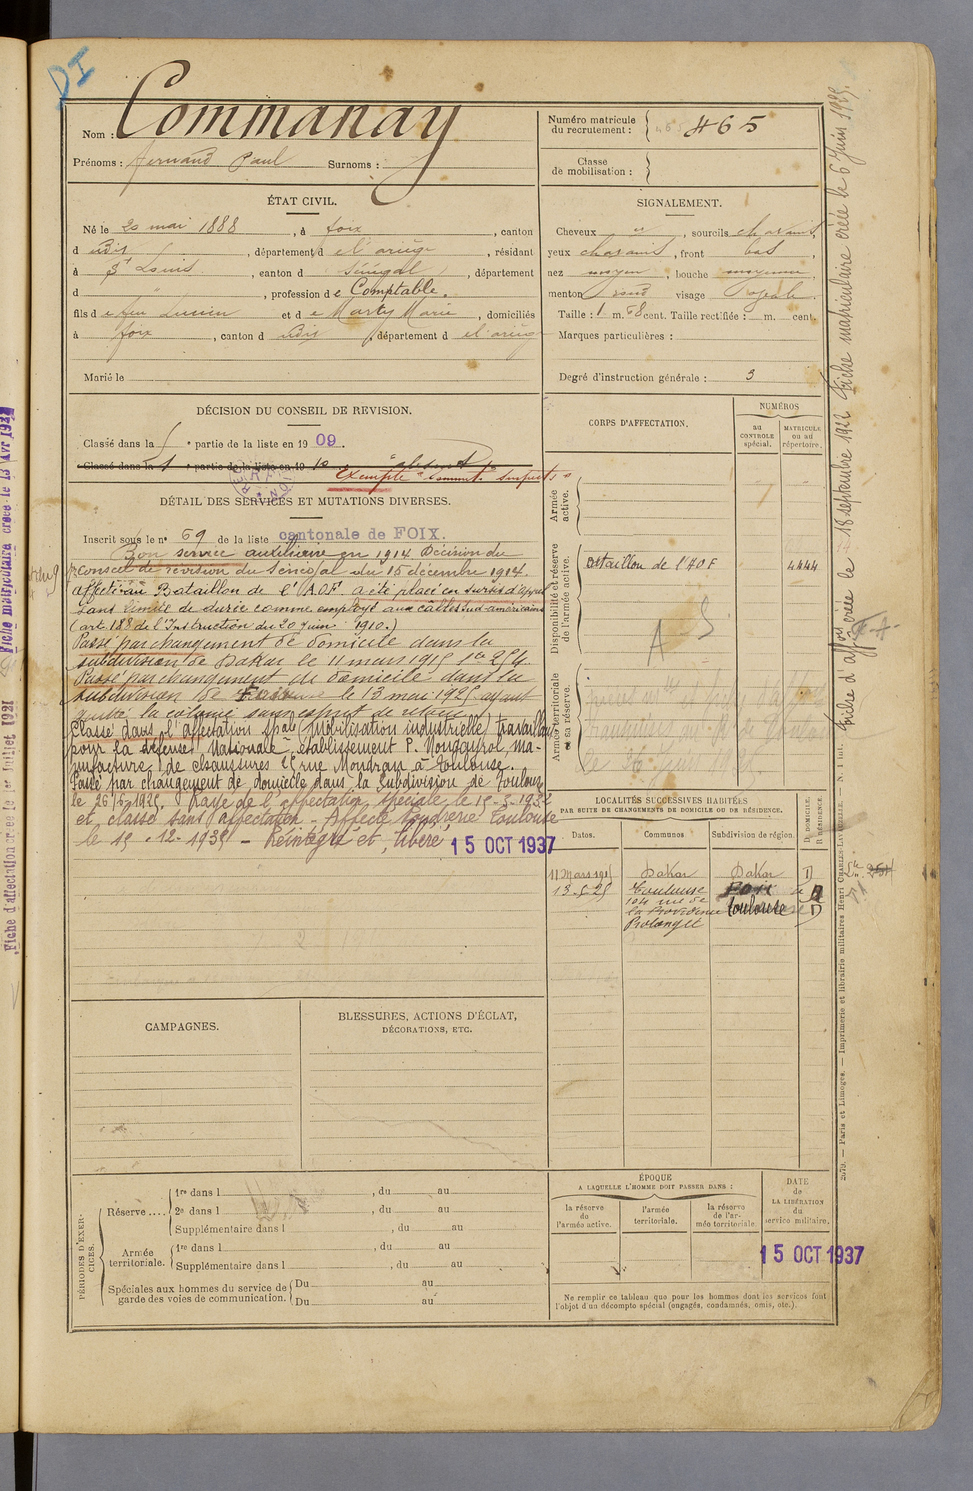 DI
Nom : Commanay
Prénoms : Fernand Paul Surnoms :
Numéro matricule du recrutement : 465
Classe de mobilisation :
ÉTAT CIVIL.
Né le 20 mai 1888, à foix, canton
d udit, département d e l'ariège, résidant
à St Louis, canton d Sénégal, département
d , profession d e Comptable.
fils d e feu Lucien et d e Marty Marie, domiciliés
à foix, canton d udit, département d e l'ariège
Marié le
SIGNALEMENT.
Cheveux et, sourcils chatains,
yeux chatains, front bas,
nez moyen, bouche moyenne,
menton rond visage ovale.
Taille : 1 m. 58 cent. Taille rectifiée : m. cent.
Marques particulières :
Degré d'instruction générale : 3
DÉCISION DU CONSEIL DE REVISION.
Classé dans la 5e partie de la liste en 1909.
Classé dans la 1 e partie de la liste en 1910 "absent"
Exempté
DÉTAIL DES SERVICES ET MUTATIONS DIVERSES.
Inscrit sous le n° 69 de la liste cantonale de FOIX.
Bon service auxiliaire en 1914 Décision du
Conseil de révision du Sénégal du 15 décembre 1914.
affecté au Bataillon de l'A.O.F. a été placé en sursis d'appel
sans limite de durée comme employé aux câbles sud-américains
(art. 188 de l'Instruction du 20 juin 1910.)
Passé par changement de domicile dans la
subdivision de Dakar le 11 mars 1915
Passé par changement de domicile dans la
subdivision de le 13 mai 1925 ayant
quitté la colonie sans esprit de retour
Classé dans l'affectation spale (Mobilisation industrielle) travaillant
pour la défense Nationale - établissement P. ma-
nufacture de chaussures rue Moudran à Toulouse.
Passé par changement de domicile dans la subdivision de Toulouse
le 26/6/1925. Rayé de l'affectation spéciale le 15-3-1932
et classé sans affectation - Affecté Poudrerie Toulouse
le 15-12-1935 - Réintégré et libéré 15 OCT 1937
CORPS D'AFFECTATION.
NUMÉROS
au CONTROLE spécial.
MATRICULE ou au répertoire.
Armée active.
Disponibilité et réserve de l'armée active.
Bataillon de l'AOF 4444
A S
Armée territoriale et sa réserve.
LOCALITÉS SUCCESSIVES HABITÉES
PAR SUITE DE CHANGEMENTS DE DOMICILE OU DE RÉSIDENCE.
Dates. Communes Subdivision de région. D. DOMICILE. R. RÉSIDENCE.
11 Mars 1915 Dakar Dakar D
13.5.25 Toulouse Foix D
104 rue de
la Providence Toulouse D
Prolongée
CAMPAGNES.
BLESSURES, ACTIONS D'ÉCLAT,
DÉCORATIONS, ETC.
PÉRIODES D'EXERCICES.
Réserve ....
1re dans l , du au
2e dans l , du au
Supplémentaire dans l , du au
Armée territoriale.
1re dans l , du au
Supplémentaire dans l , du au
Spéciales aux hommes du service de garde des voies de communication.
Du au
Du au
ÉPOQUE
A LAQUELLE L'HOMME DOIT PASSER DANS :
la réserve de l'armée active.
l'armée territoriale.
la réserve de l'armée territoriale.
DATE de LA LIBÉRATION du service militaire.
15 OCT 1937
Ne remplir ce tableau que pour les hommes dont les services font
l'objet d'un décompte spécial (engagés, condamnés, omis, etc.).
2079. — Paris et Limoges. — Imprimerie et librairie militaires Henri CHARLES-LAVAUZELLE. — N. 1 int.
Fiche d'affon créée le 18 septembre 1922 Fiche matriculaire créée le 6 Juin 1925.
Fiche d'affectation créée le 1er Juillet 1921
Fiche matriculaire créée le 13 Avr 1921